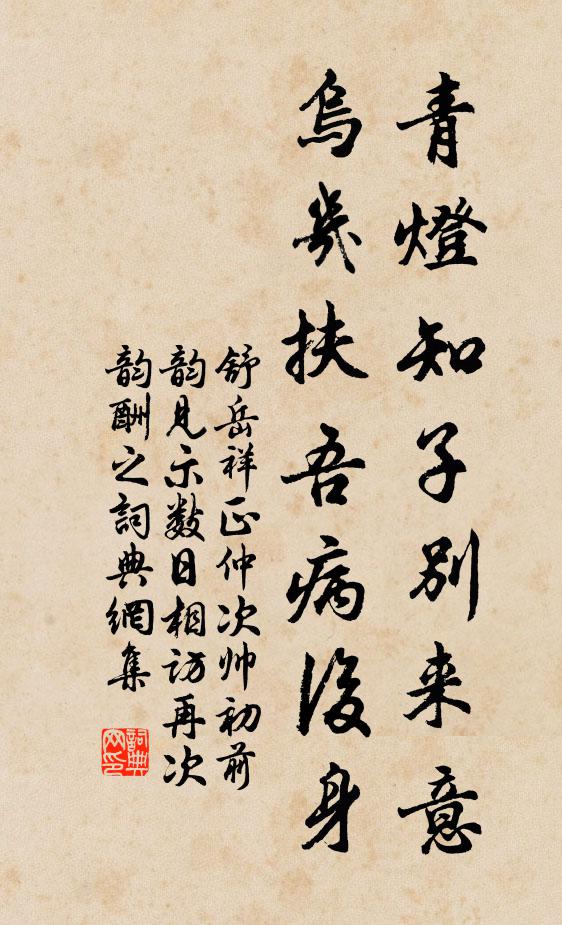 青燈知子別来意
烏几扶吾病後身
舒岳祥正仲次帅初前
韵見示数日相访再次
韵酬之詞典網集
詞典
网印